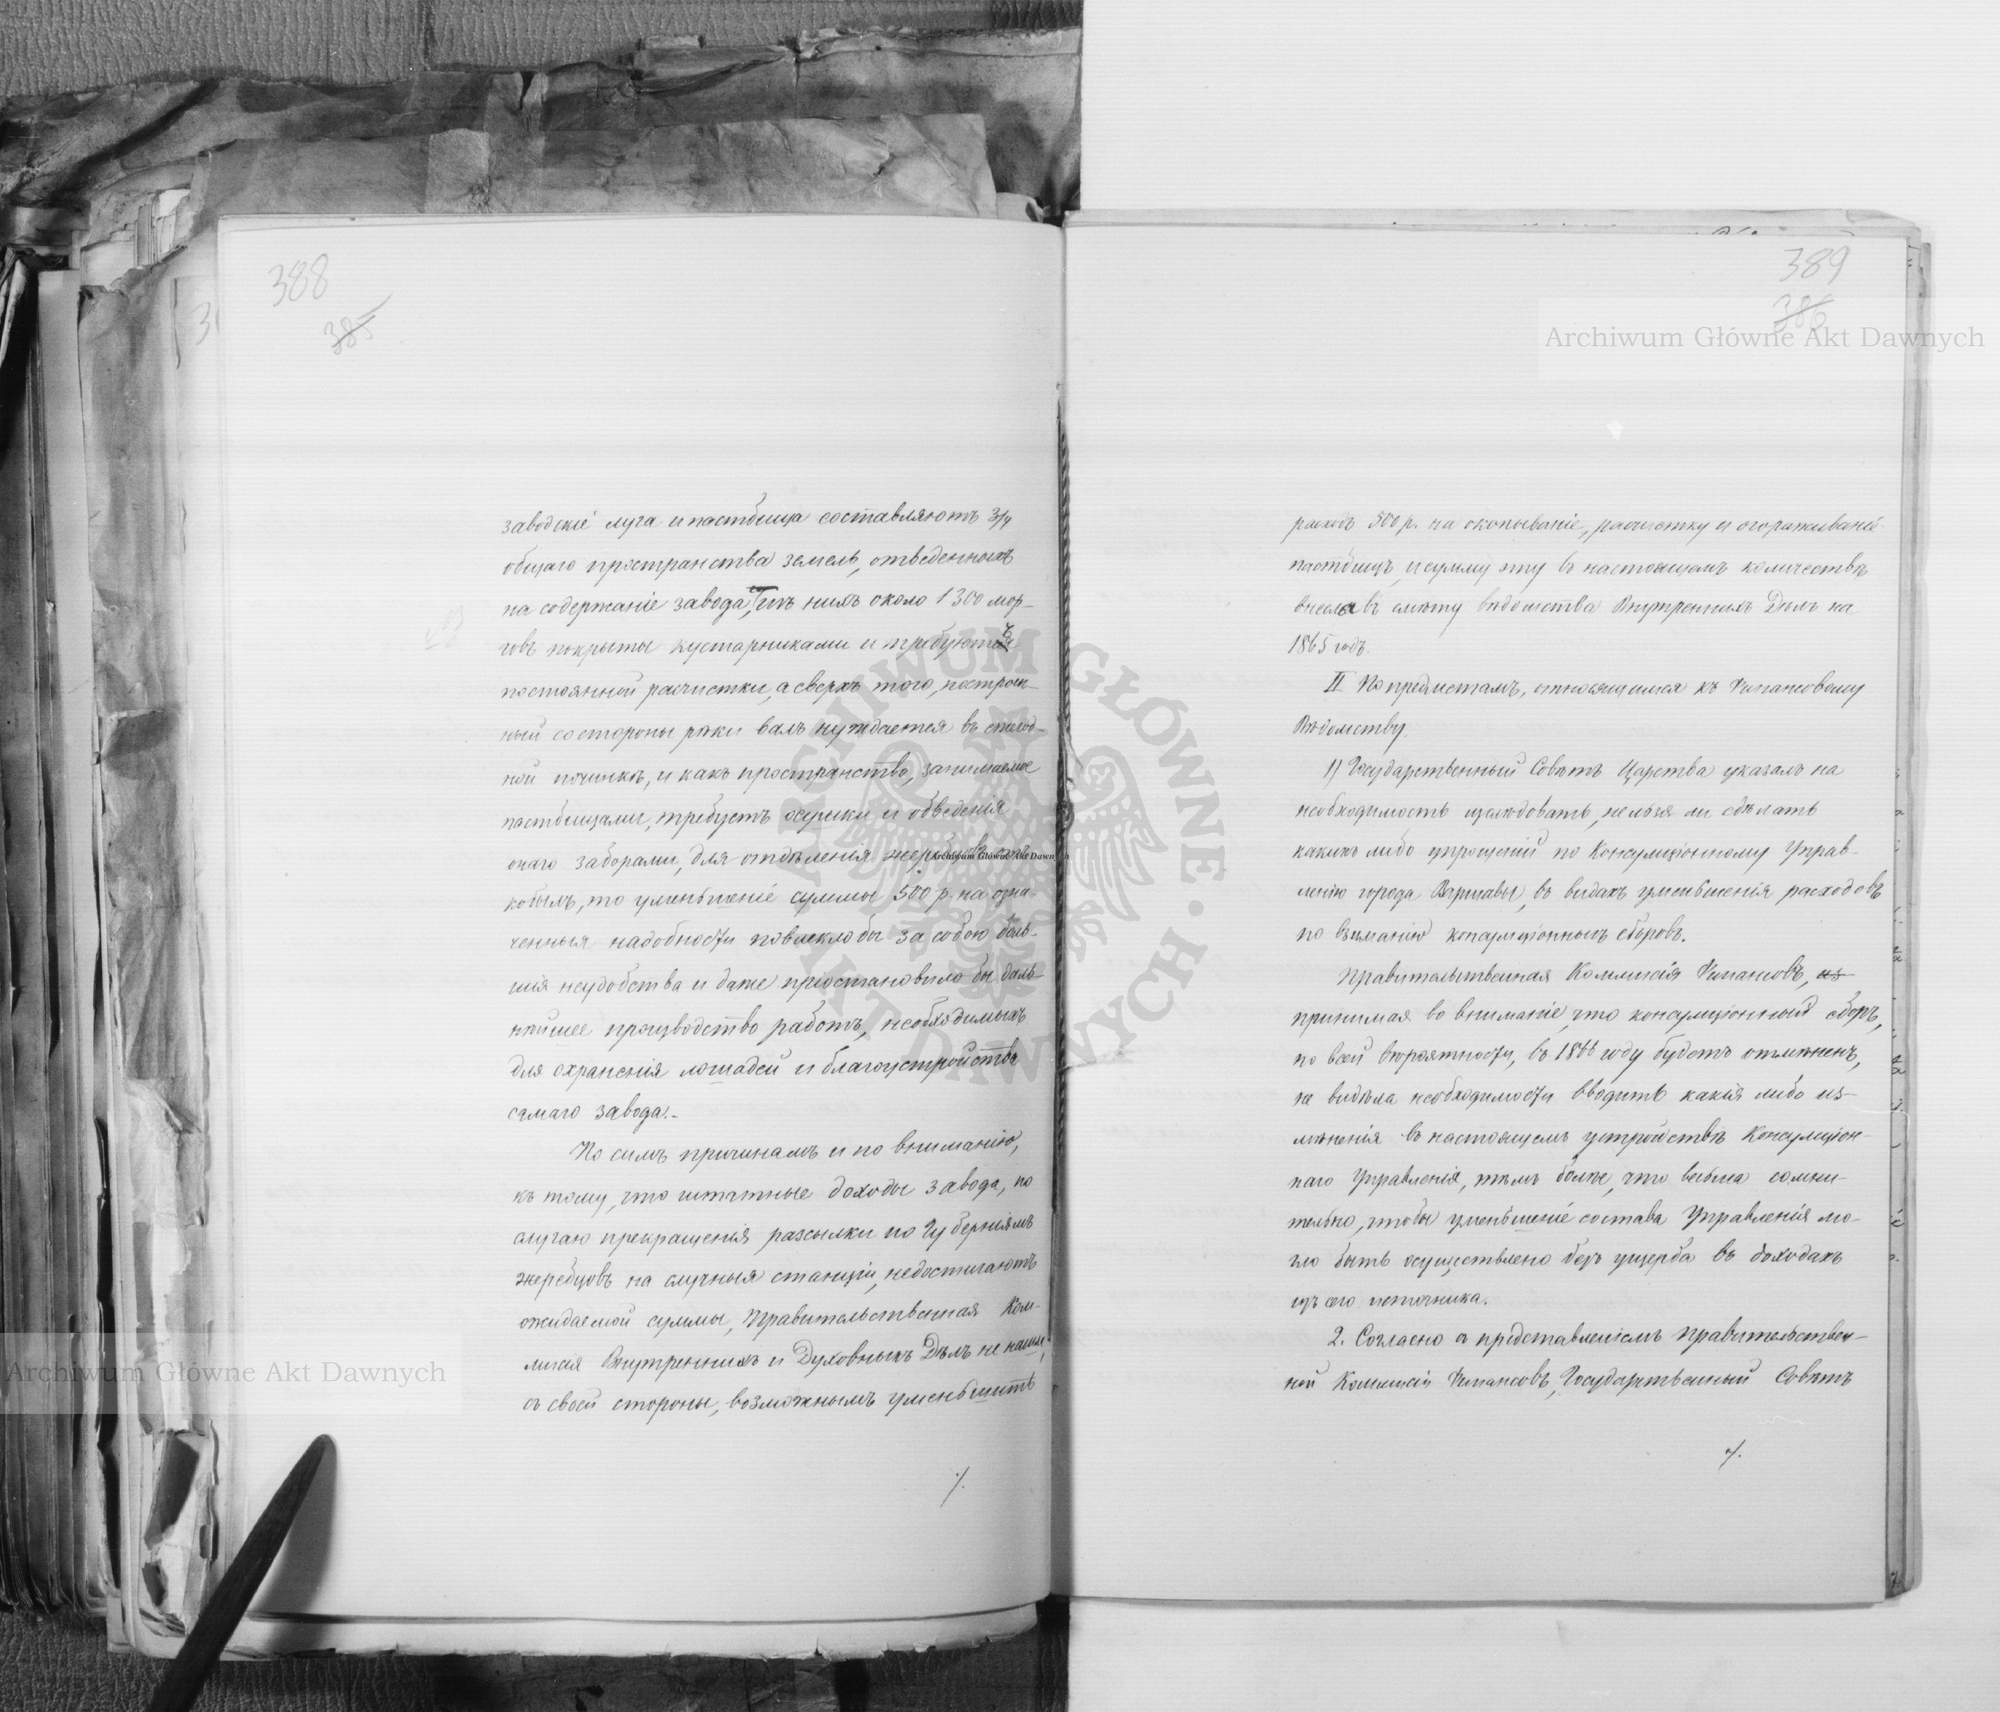 388
385
заводскіе луга и пастбища составляютъ 3/4
общаго пространства земель, отведенныхъ
на содержаніе завода, изъ нихъ около 1300 мор-
говъ покрыты кустарниками и требуютъ
постоянной расчистки, а сверхъ того, построен-
ный со стороны рѣки валъ нуждается въ ежегод-
ной починкѣ, и какъ пространство, занимаемое
пастбищами, требуетъ осушки и обведенія
онаго заборами, для отдѣленія жеребцовъ отъ
кобылъ, то уменьшеніе суммы 500 р. на озна-
ченныя надобности повлекло бы за собою боль-
шія неудобства и даже пріостановило бы даль-
нѣйшее производство работъ, необходимыхъ
для охраненія лошадей и благоустройства
самаго завода.-
По симъ причинамъ и по вниманію,
къ тому, что штатные доходы завода, по
случаю прекращенія разсылки по Губерніямъ
жеребцовъ на случныя станціи, недостигаютъ
ожидаемой суммы, Правительственная Ком-
мисія Внутреннихъ и Духовныхъ Дѣлъ не нашла,
съ своей стороны, возможнымъ уменьшить
./.
389
386
расходъ 500 р. на окопываніе, расчистку и огораживаніе
пастбищъ, и сумму эту въ настоящемъ количествѣ
внесла въ смѣту вѣдомства Внутреннихъ Дѣлъ на
1865 годъ.
II По предметамъ, относящимся къ Финансовому
Вѣдомству.
1) Государственный Совѣтъ Царства указалъ на
необходимость изслѣдовать, нельзя ли сдѣлать
какихъ либо упрощеній по Консумціонному Управ-
ленію города Варшавы, въ видахъ уменьшенія расходовъ
по взиманію консумціонныхъ сборовъ.
Правительственная Коммисія Финансовъ, из-
принимая во вниманіе, что консумціонный сборъ,
по всей вѣроятности, въ 1866 году будетъ отмѣненъ,
не видѣла необходимости вводить какія либо из-
мѣненія въ настоящемъ устройствѣ Консумціон-
наго Управленія, тѣмъ болѣе, что весьма сомни-
тельно, чтобы уменьшеніе состава Управленія мо-
гло быть осуществлено безъ ущерба въ доходахъ
изъ сего источника.
2. Согласно съ представленіемъ Правительствен-
ной Коммисіи Финансовъ, Государственный Совѣтъ
./.
Archiwum Główne Akt Dawnych
Archiwum Główne Akt Dawnych
Archiwum Główne Akt Dawnych
ARCHIWUM GŁÓWNE AKT DAWNYCH